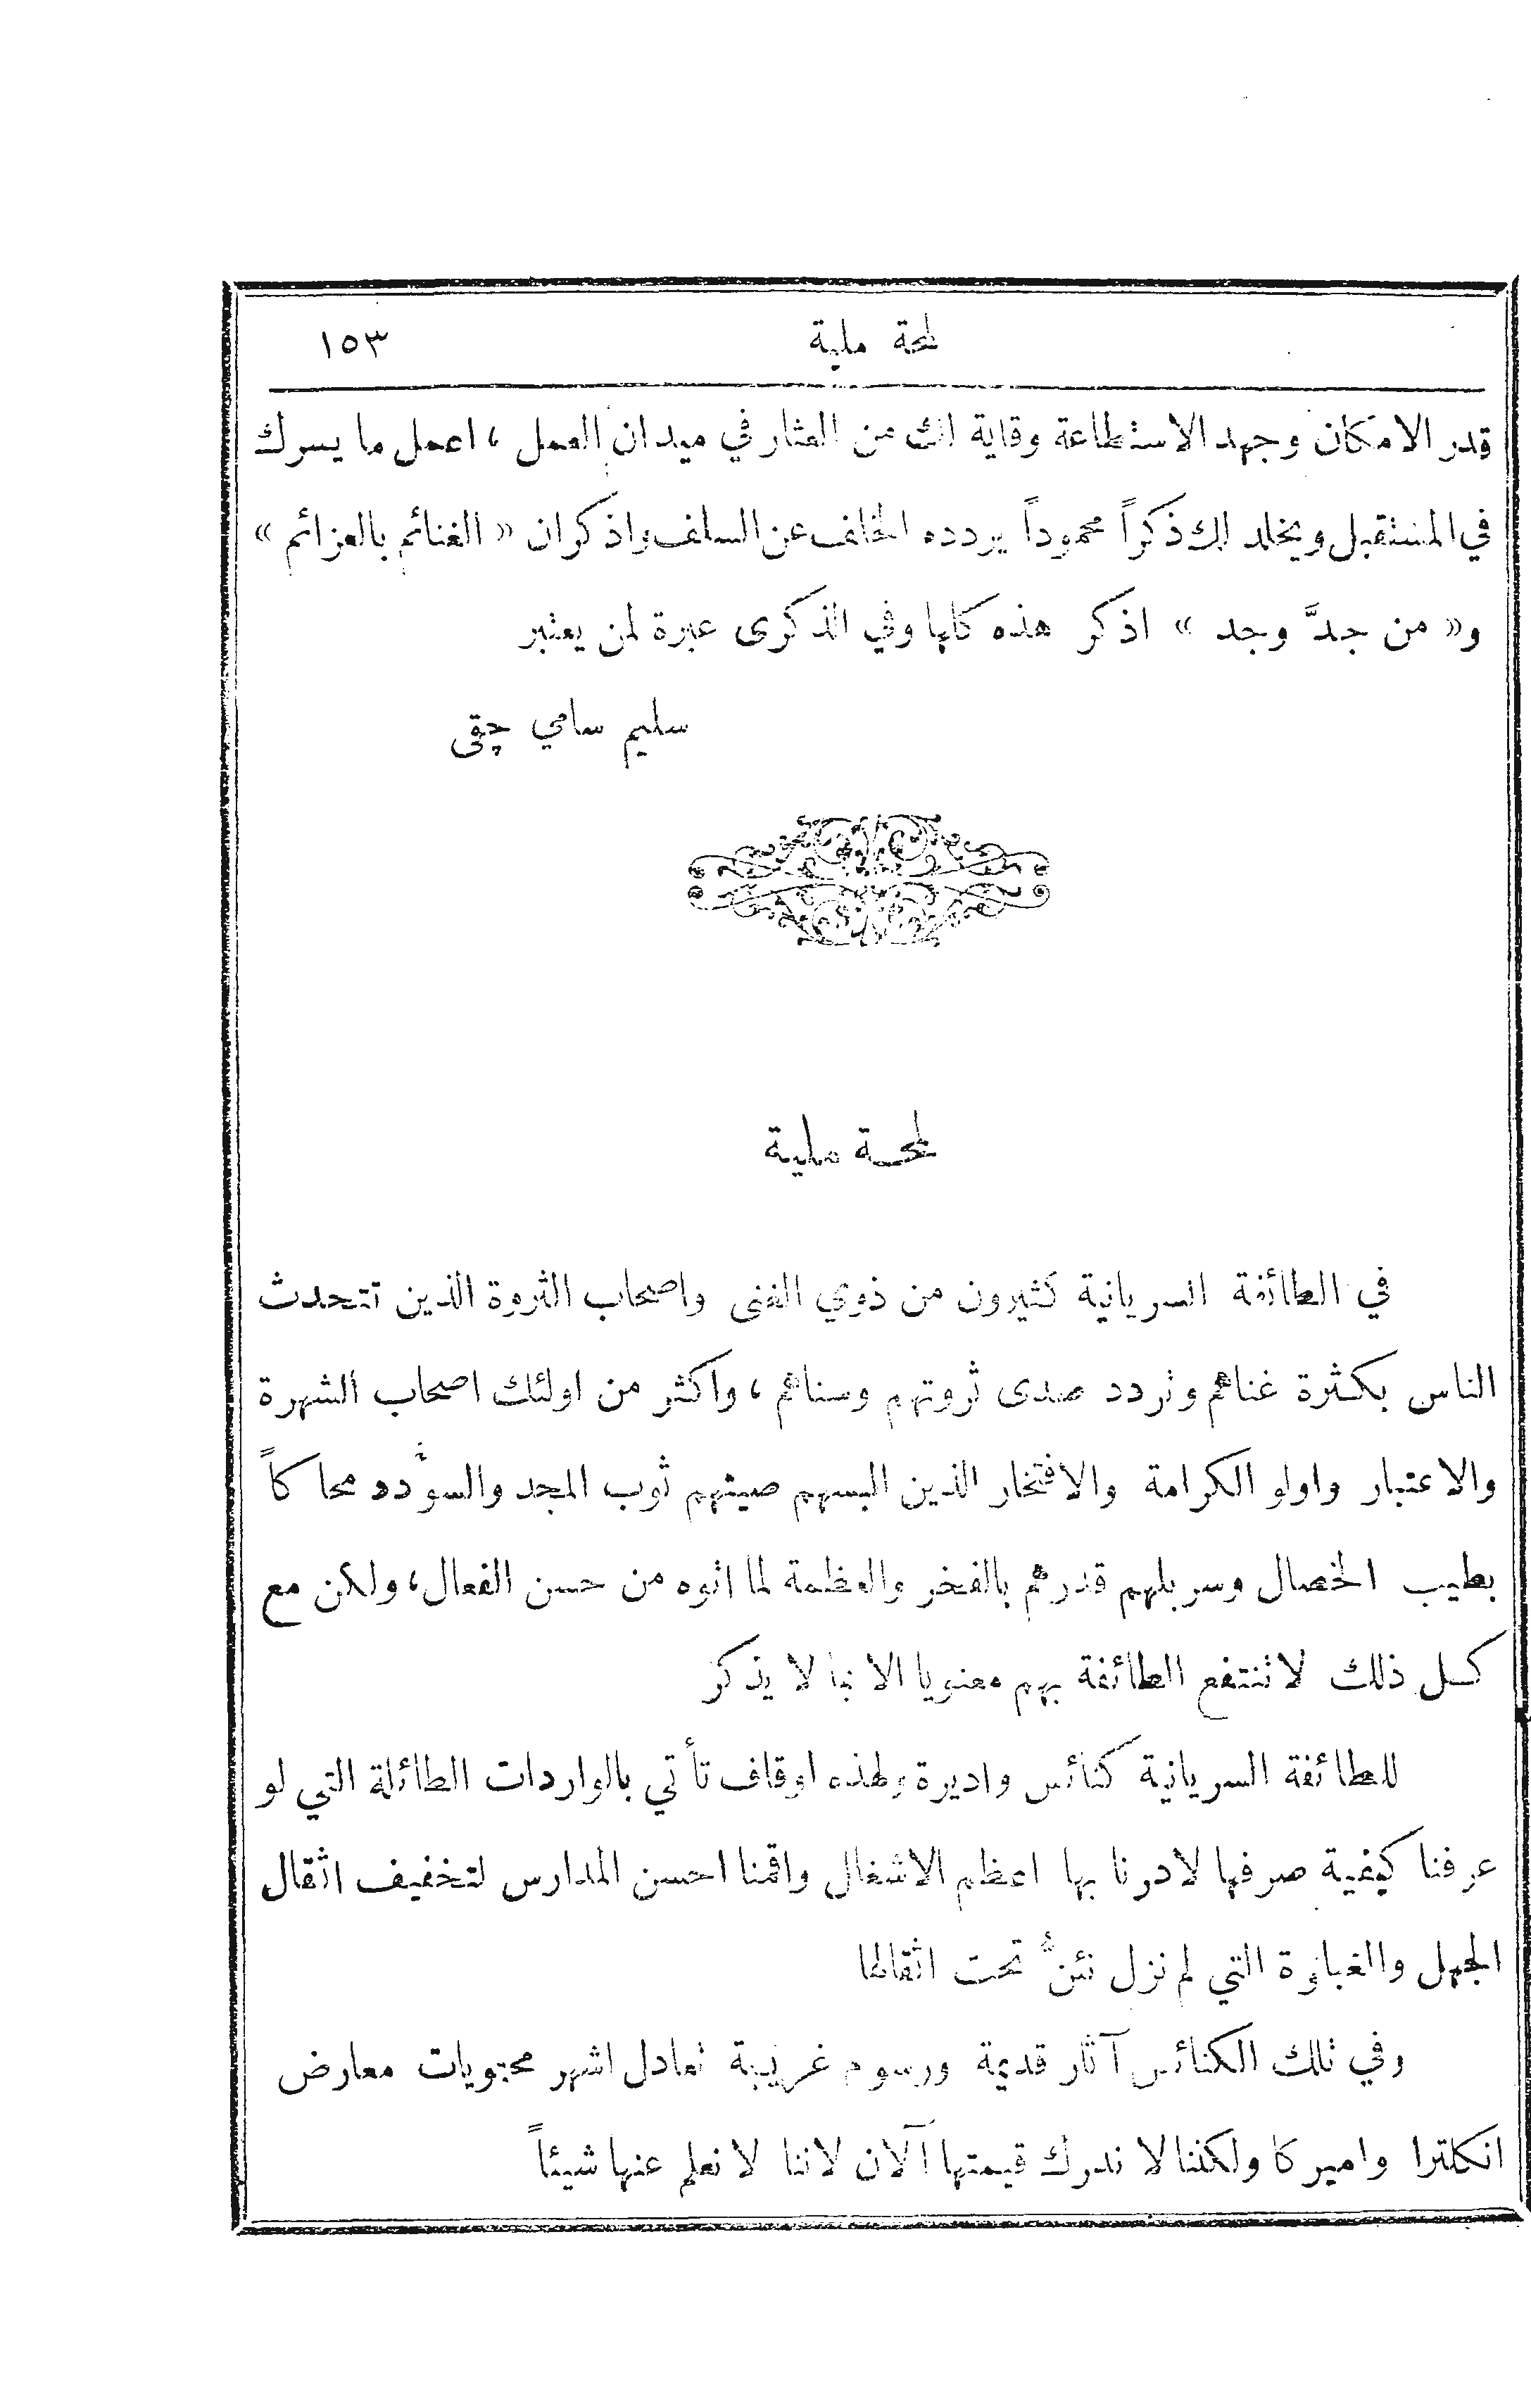 لمحة ملية ١٥٣
قدر الامكان وجهد الاستطاعة وقاية لك من العثار في ميدان العمل ، اعمل ما يسرك
في المستقبل ويخلد لك ذكراً محموداً يردده الخلف عن السلف واذكر ان « الغنائم بالعزائم »
و« من جدَّ وجد » اذكر هذه كلها وفي الذكرى عبرة لمن يعتبر
سليم سامي چقى
لمحة ملية
في الطائفة السريانية كثيرون من ذوي الغنى واصحاب الثروة الذين تتحدث
الناس بكثرة غناهم وتردد صدى ثروتهم وسناهم ، واكثر من اولئك اصحاب الشهرة
والاعتبار واولو الكرامة والافتخار الذين البسهم صيتهم ثوب المجد والسؤدد محاكاً
بطيب الخصال وسربلهم قدرهم بالفخر والعظمة لما اتوه من حسن الفعال، ولكن مع
كل ذلك لا تنتفع الطائفة بهم معنويا الا بما لا يذكر
للطائفة السريانية كنائس واديرة ولهذه اوقاف تأتي بالواردات الطائلة التي لو
عرفنا كيفية صرفها لادرنا بها اعظم الاشغال واقمنا احسن المدارس لتخفيف اثقال
الجهل والغباوة التي لم نزل نئنُّ تحت اثقالها
وفي تلك الكنائس آثار قديمة ورسوم غريبة تعادل اشهر محتويات معارض
انكلترا واميركا ولكننا لا ندرك قيمتها الآن لاننا لا نعلم عنها شيئاً